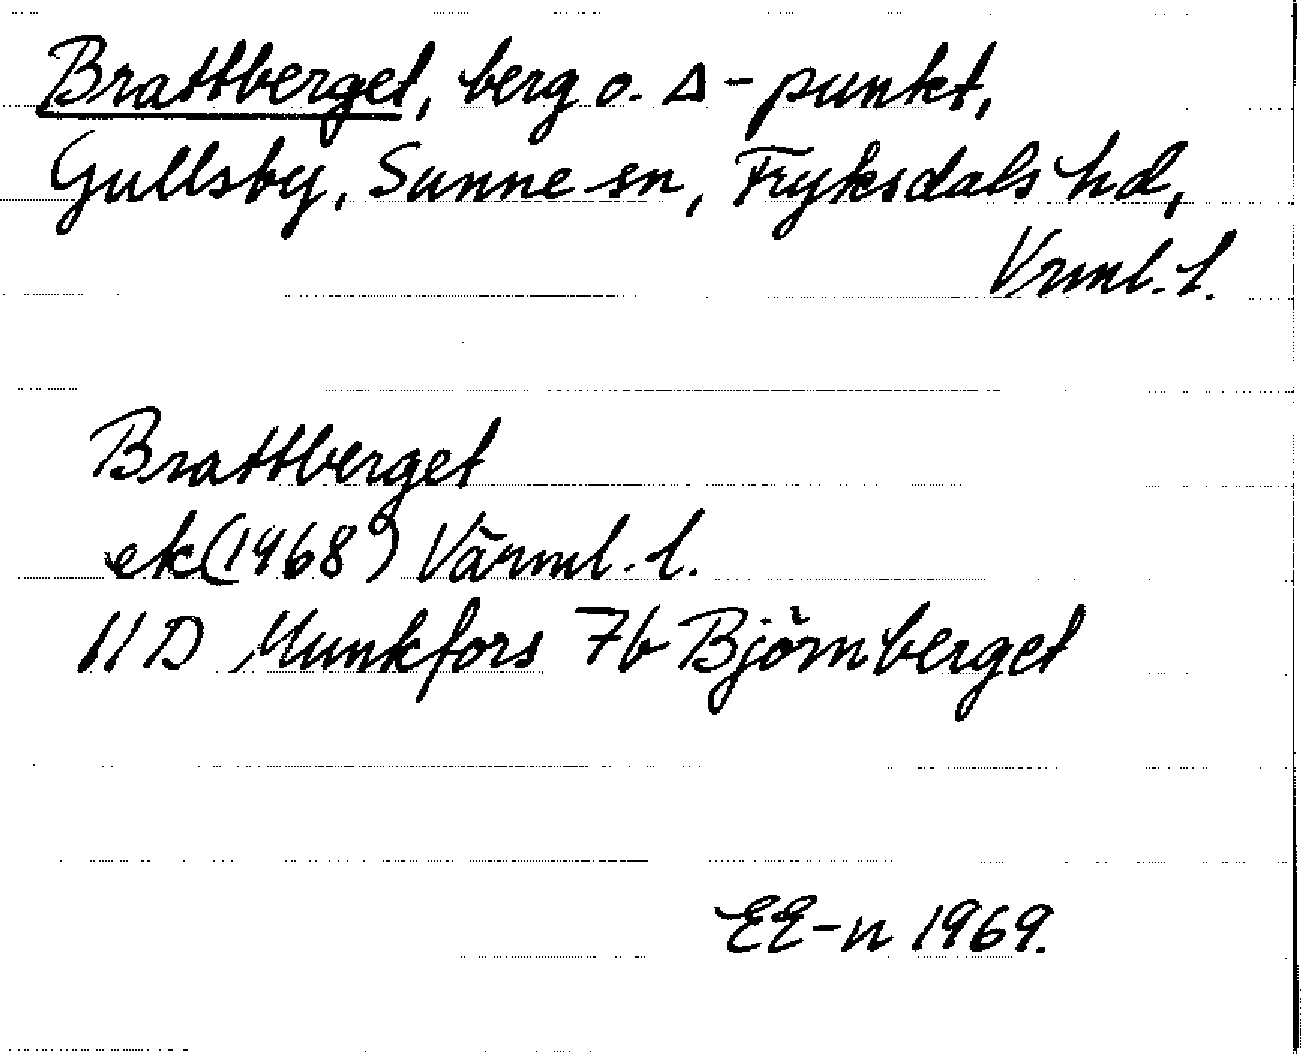 Brattberget, berg o. Δ-punkt,
Gullsby, Sunne sn, Fryksdals hd,
Vrml. l.
Brattberget
ek (1968) Värml. l.
11D Munkfors 7b Björnberget
EE-n 1969.